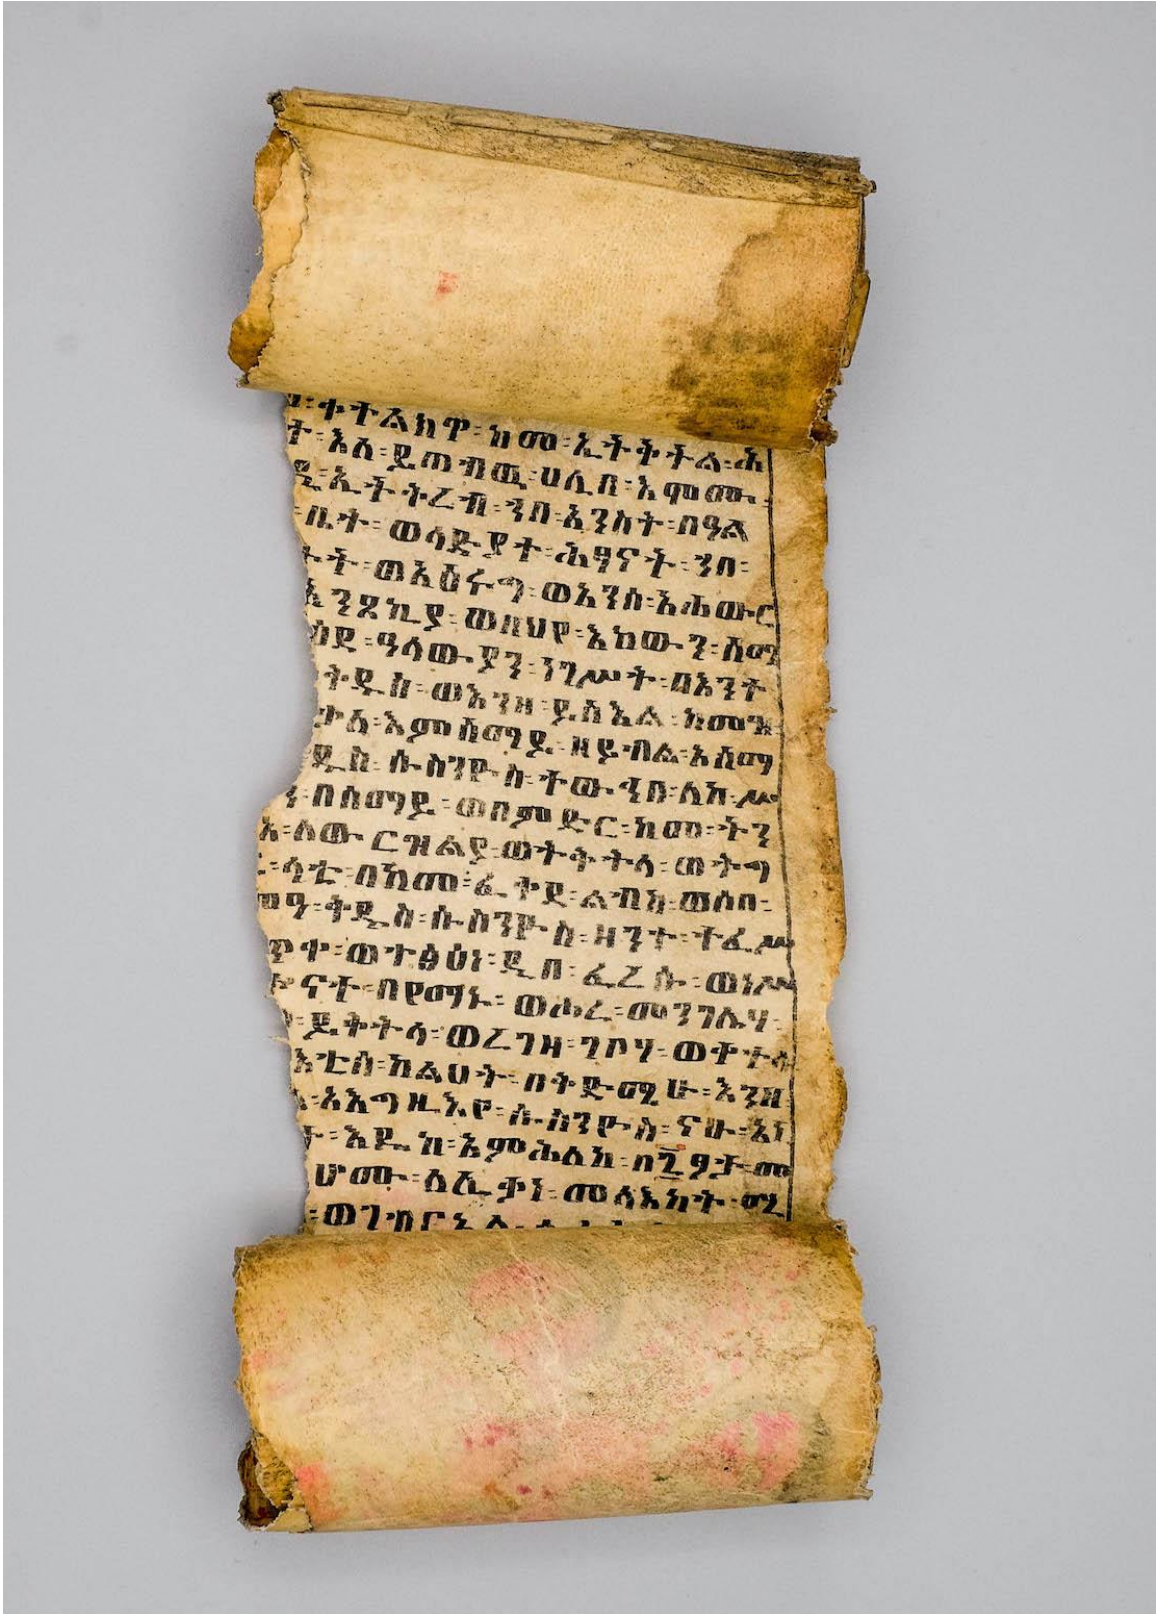 ቀተልክዋ ፡ ከመ ፡ ኢትቅትል ፡ ሕ
ት ፡ እለ ፡ ይጠብዉ ፡ ሀሊበ ፡ እሞሙ ፡
ኢትትረብ ፡ ኀበ ፡ አንስት ፡ በዓል
ቤት ፡ ወሳድያተ ፡ ሕፃናት ፡ ኀበ ፡
ወአዕሩግ ፡ ወአንሰ ፡ አሐውር
አንጾኪያ ፡ ወበህየ ፡ እከውን ፡ ሰማ
ዓላውያን ፡ ነገሥት ፡ በእንተ
ቅዱስ ፡ ወእንዘ ፡ ይስእል ፡ ከመዝ
ቃለ ፡ እምሰማይ ፡ ዘይብል ፡ አሰማ
ሱስንዮስ ፡ ተውኅበ ፡ ለከ ፡ ሥ
በሰማይ ፡ ወበምድር ፡ ከመ ፡ ትን
ለውርዝልያ ፡ ወትቅትላ ፡ ወትግ
ላቲ ፡ በከመ ፡ ፈቀደ ፡ ልብከ ፡ ወሰበ ፡
ቅዱስ ፡ ሱስንዮስ ፡ ዘንተ ፡ ተፈሥ
ጥቀ ፡ ወተፅዕነ ፡ ዲበ ፡ ፈረሱ ፡ ወነሥ
ናተ ፡ በየማኑ ፡ ወሖረ ፡ መንገሌሃ ፡
ይቅትላ ፡ ወረገዘ ፡ ገቦሃ ፡ ወቀተላ
ከልሀት ፡ በቅድሚሁ ፡ እንዘ
አእግዚእየ ፡ ሱስንዮስ ፡ ናሁ ፡ አነ
እምሕለከ ፡ በ፯ ፃቃ ፡ መ
ሆሙ ፡ ለሊቃነ ፡ መላእክት ፡ ሚ
ወገብርኤል ፡